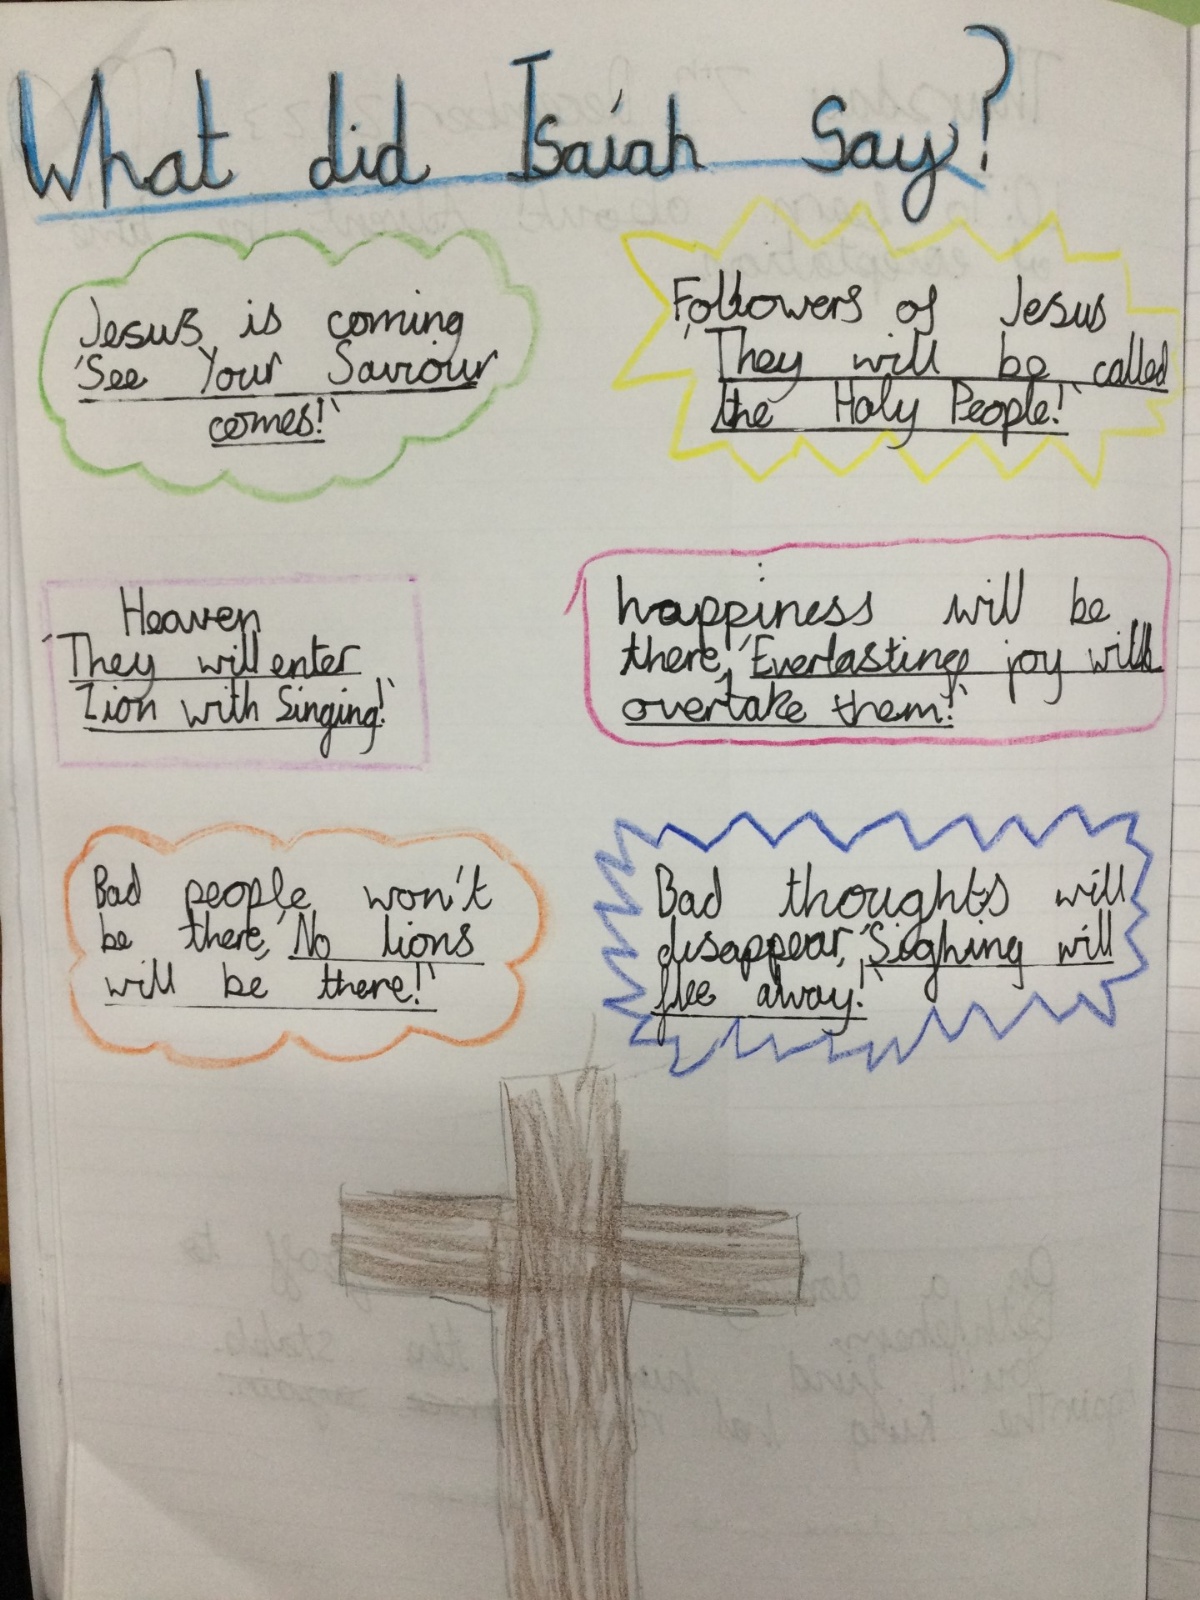 What did Isaiah Say?
Jesus is coming
'See Your Saviour
comes!'
Followers of Jesus
'They will be called
the Holy People!'
Heaven
'They will enter
Zion with Singing!'
happiness will be
there, 'Everlasting joy will
overtake them!'
Bad people won't
be there, 'No lions
will be there!'
Bad thoughts will
disappear, 'Sighing will
flee away!'